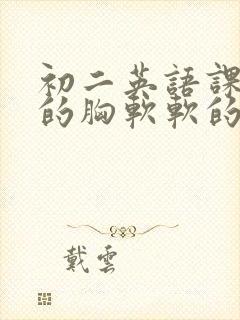 初二英語課
的胸軟軟的
戴雲